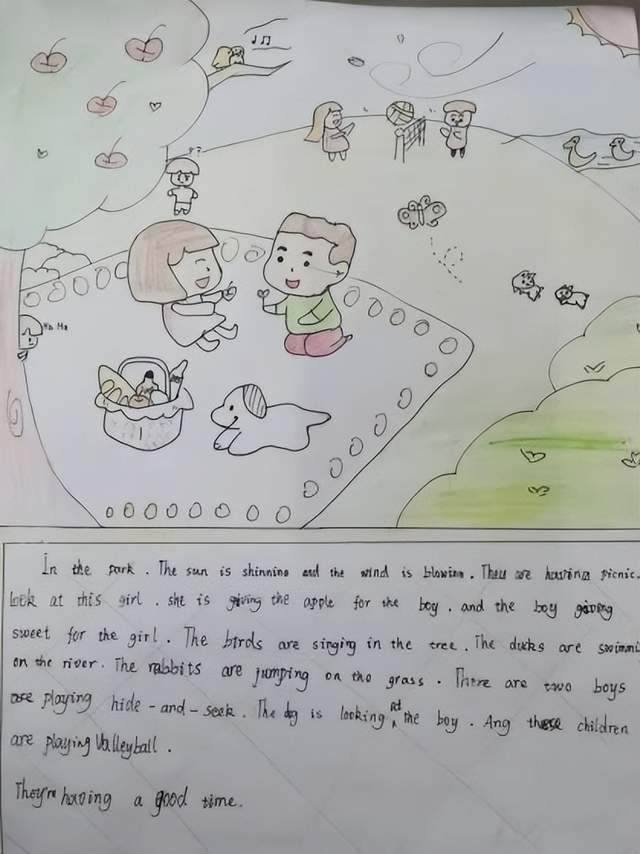 ??
Ha Ha
In the park . The sun is shinning and the wind is blowing . They are having picnic.
look at this girl . she is giving the apple for the boy . and the boy giving
sweet for the girl . The birds are singing in the tree . The ducks are swimmi
on the river . The rabbits are jumping on the grass . There are two boys
are playing hide-and-seek . The dog is looking at the boy . And these children
are playing Valleyball .
They're having a good time.